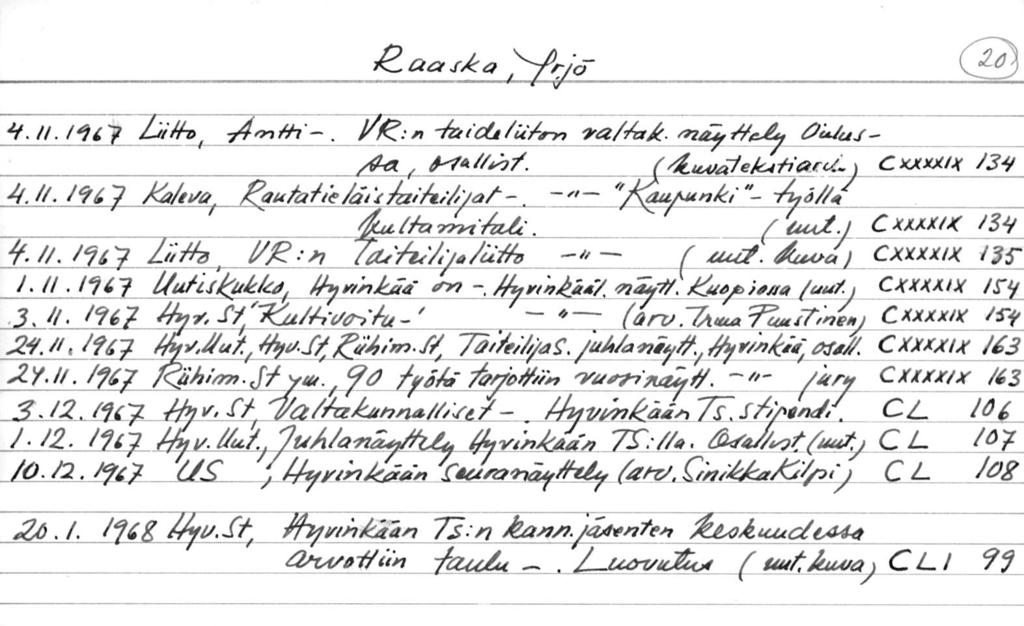 Raaska, Yrjö 20
4.11.1967 Liitto, Antti-. VR:n taideliiton valtak. näyttely Oulus-
sa, osallist. (kuvatekstiarv.) CXXXXIX 134
4.11.1967 Kaleva, Rautatieläistaiteilijat-. -"- "Kaupunki"- työllä
kultamitali. (uut.) CXXXXIX 134
4.11.1967 Liitto, VR:n Taiteilijaliitto -"- (uut. kuva) CXXXXIX 135
1.11.1967 Uutiskukko, Hyvinkää on -. Hyvinkääl. näytt. Kuopiossa (uut.) CXXXXIX 154
3.11.1967 Hyv.St, 'Kultivoitu-' -"- (arv. Irma Puustinen) CXXXXIX 154
24.11.1967 Hyv.Uut., Hyv.St, Riihim.St, TaiteilijaS. juhlanäytt., Hyvinkää, osall. CXXXXIX 163
24.11.1967 Riihim.St ym., 90 työtä tarjottiin vuosinäytt. -"- jury CXXXXIX 163
3.12.1967 Hyv.St, Valtakunnalliset -. Hyvinkään Ts. stipendi. CL 106
1.12.1967 Hyv.Uut., Juhlanäyttely Hyvinkään TS:lla. Osallist. (uut.) CL 107
10.12.1967 US, Hyvinkään seuranäyttely (arv. Sinikka Kilpi) CL 108
20.1.1968 Hyv.St, Hyvinkään Ts:n kann.jäsenten keskuudessa
arvottiin taulu -. Luovutus (uut. kuva) CLI 99